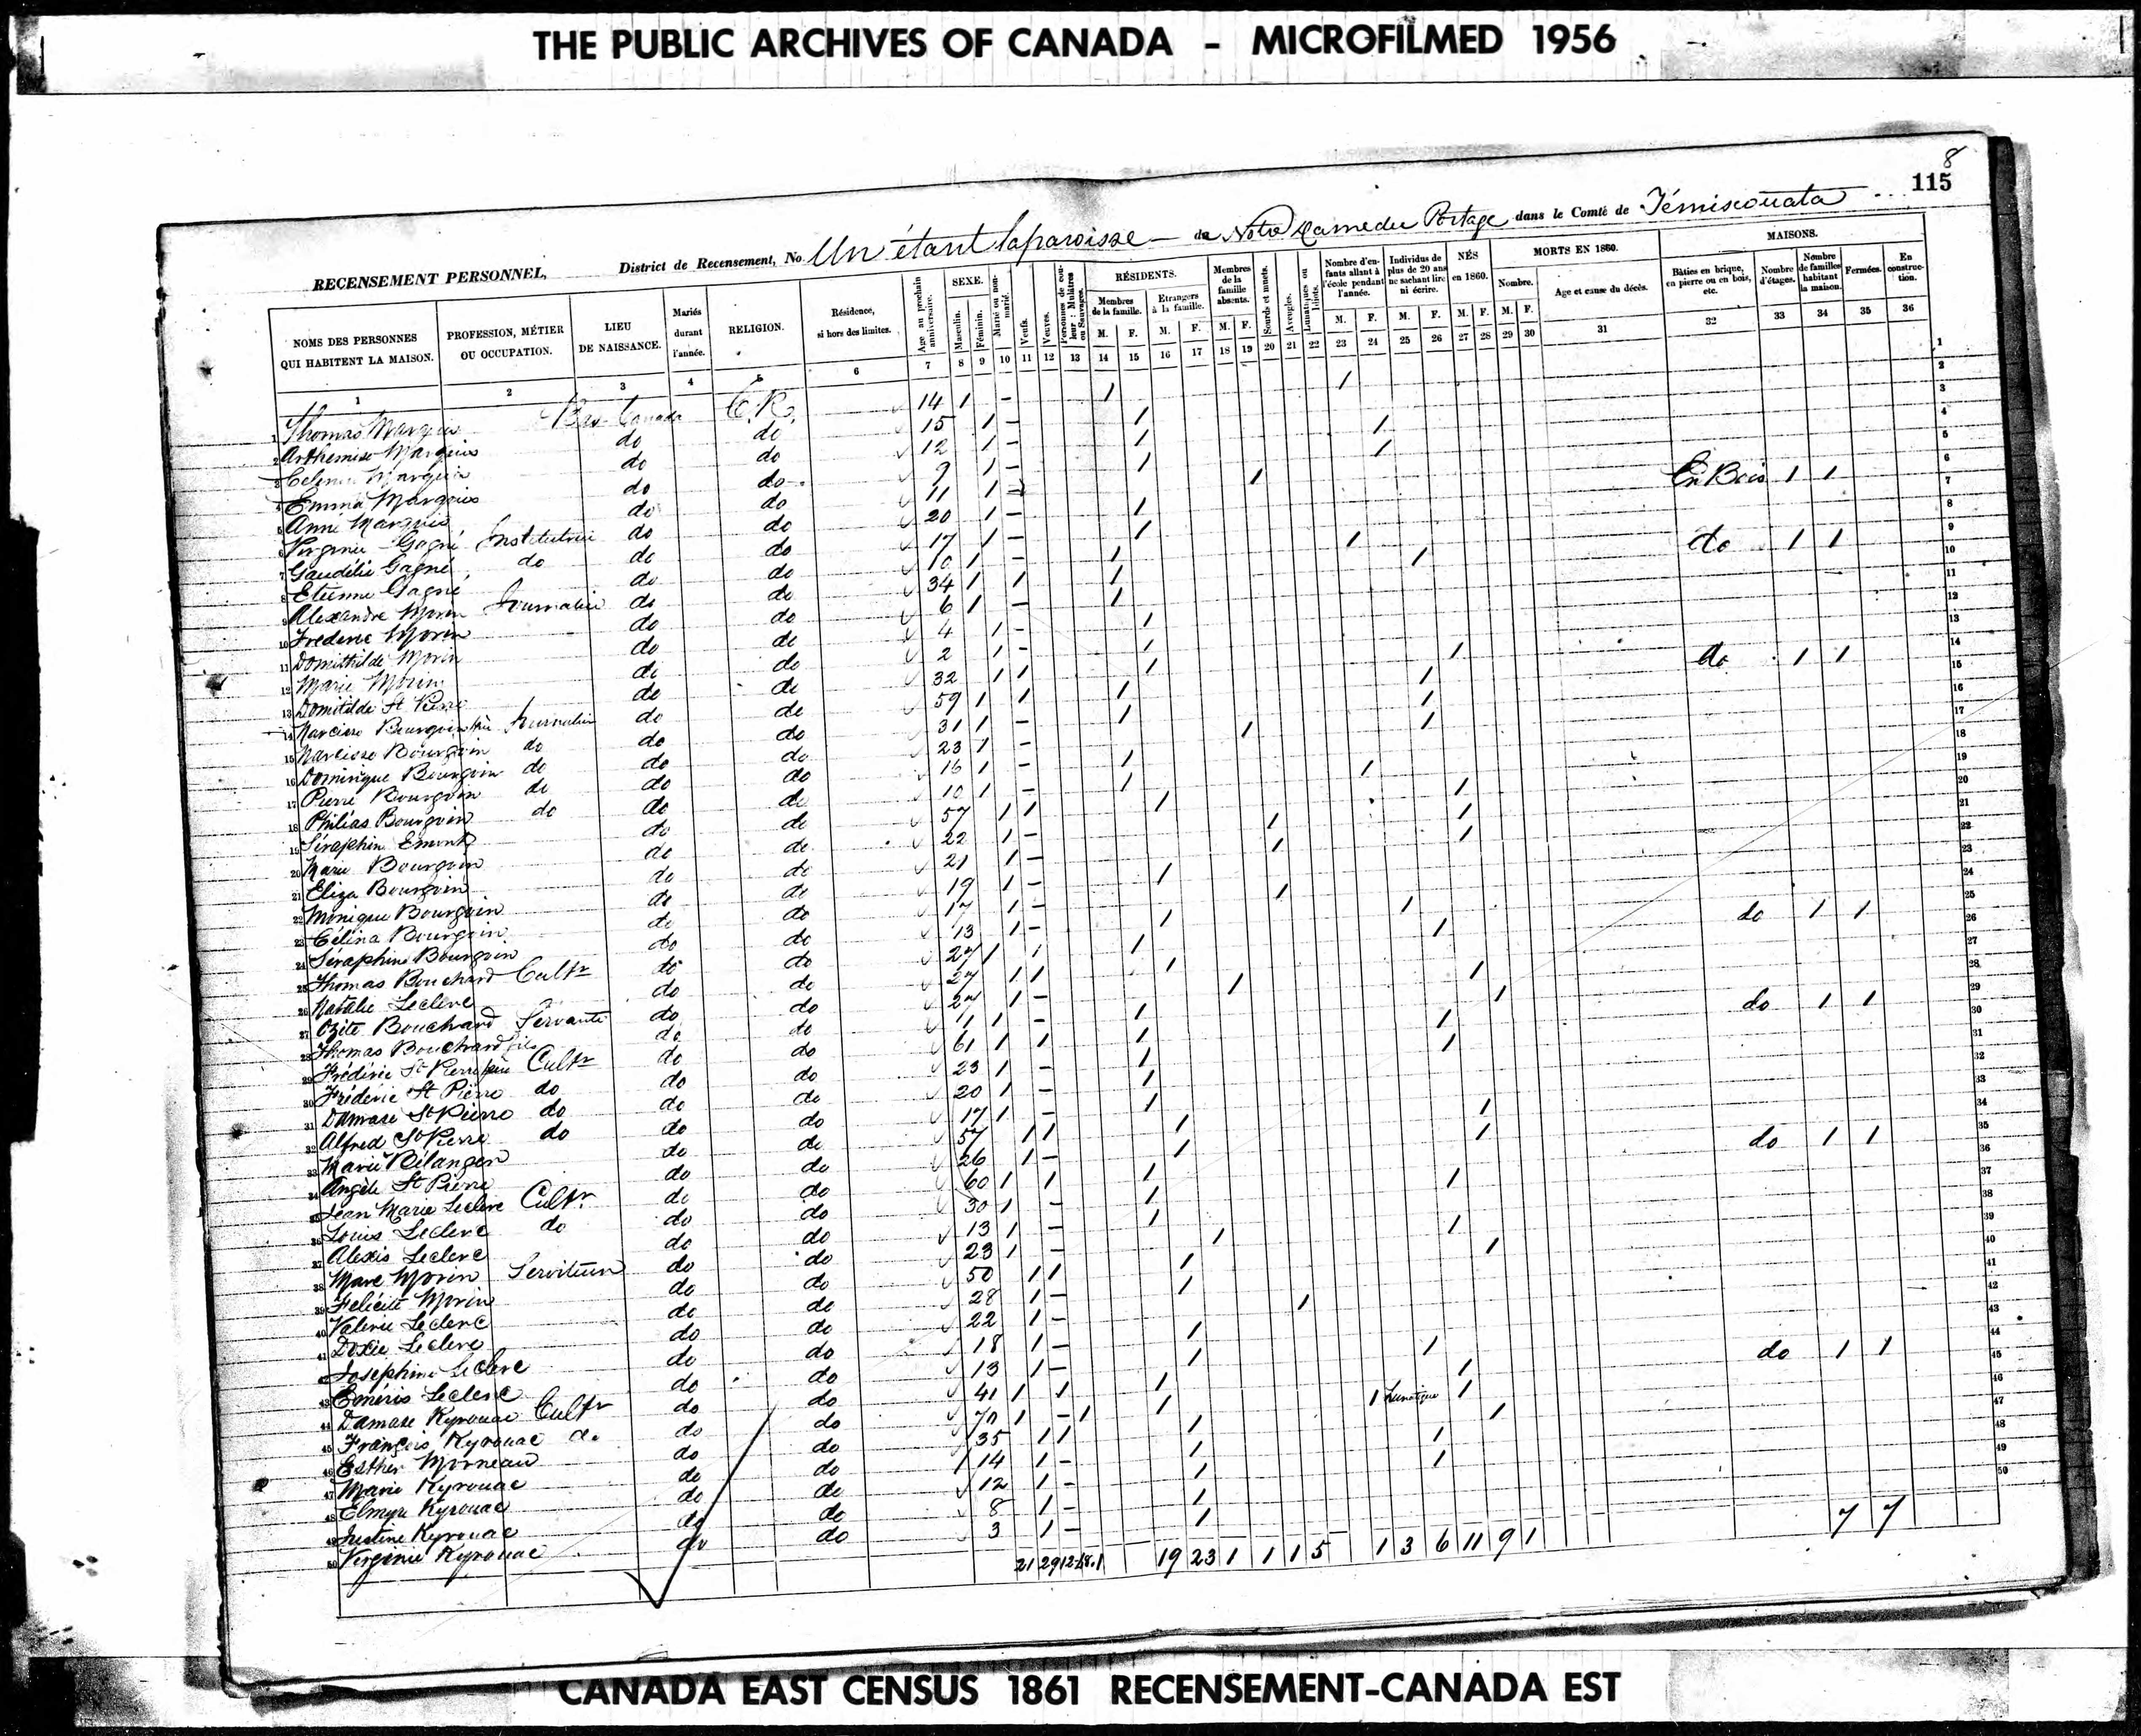 THE PUBLIC ARCHIVES OF CANADA - MICROFILMED 1956
8
115
RECENSEMENT PERSONNEL, District de Recensement, No. Un étant la paroisse de Notre Dame du Portage dans le Comté de Témiscouata
NOMS DES PERSONNES QUI HABITENT LA MAISON.
PROFESSION, MÉTIER OU OCCUPATION.
LIEU DE NAISSANCE.
Mariés durant l'année.
RELIGION.
Résidence, si hors des limites.
Age au prochain anniversaire.
SEXE.
Masculin.
Féminin.
Marié ou non-marié.
Veufs.
Veuves.
Personnes de couleur : Mulâtres ou Sauvages.
RÉSIDENTS.
Membres de la famille.
Etrangers à la famille.
Membres de la famille absents.
Sourds et muets.
Aveugles.
Lunatiques ou Idiots.
Nombre d'enfants allant à l'école pendant l'année.
Individus de plus de 20 ans ne sachant lire ni écrire.
NÉS en 1860.
MORTS EN 1860.
Nombre.
Age et cause du décès.
MAISONS.
Bâties en brique, en pierre ou en bois, etc.
Nombre d'étages.
Nombre de familles habitant la maison.
Fermées.
En construction.
M. F. M. F. M. F. M. F. M. F. M. F. M. F.
1 2 3 4 5 6 7 8 9 10 11 12 13 14 15 16 17 18 19 20 21 22 23 24 25 26 27 28 29 30 31 32 33 34 35 36
1 Thomas Marquis Bas Canada C.R. 14 1 -
2 Arthemise Marquis do do 15 1 -
3 Marquis do do 12 1 -
4 Emma Marquis do do 9 1 -
5 Anne Marquis do do 11 1 -
6 Virginie Gagné Institutrice do do 20 1 - En Bois 1 1
7 Gaudélie Gagné do do do 17 1 -
8 Etienne Gagné do do 10 1 -
9 Alexandre Morin Journalier do do 34 1 1 do 1 1
10 Frédéric Morin do do 6 1 -
11 Domithilde Morin do do 4 1 -
12 Marie Morin do do 2 1 -
13 Domitilde St Pierre do do 32 1 1
14 Narcisse Bourgoin père Journalier do do 59 1 1 do 1 1
15 Narcisse Bourgoin do do do 31 1 -
16 Dominique Bourgoin do do do 23 1 -
17 Pierre Bourgoin do do do 16 1 -
18 Philias Bourgoin do do do 10 1 -
19 Séraphin Emont do do 57 1 1
20 Marie Bourgoin do do 22 1 -
21 Eliza Bourgoin do do 21 1 -
22 Monique Bourgoin do do 19 1 -
23 Célina Bourgoin do do 17 1 -
24 Séraphine Bourgoin do do 13 1 -
25 Thomas Bouchard Cultr do do 27 1 1 do 1 1
26 Natalie Leclerc do do 27 1 1
27 Ozite Bouchard Servante do do 27 1 -
28 Thomas Bouchard fils do do 1 1 -
29 Frédéric St Pierre père Cultr do do 61 1 1 do 1 1
30 Fréderic St Pierre do do do 23 1 -
31 Damase St Pierre do do do 20 1 -
32 Alfred St Pierre do do do 17 1 -
33 Marie Bélanger do do 57 1 1
34 Angèle St Pierre do do 26 1 -
35 Jean Marie Leclerc Cultr. do do 60 1 1 do 1 1
36 Louis Leclerc do do do 30 1 -
37 Alexis Leclerc do do 13 1 -
38 Marc Morin Serviteur do do 23 1 -
39 Felicité Morin do do 50 1 1
40 Valérie Leclerc do do 28 1 -
41 Doxie Leclerc do do 22 1 -
42 Joséphine Leclerc do do 18 1 -
43 Eméris Leclerc do do 13 1 -
44 Damase Kyrouac Cultr do do 41 1 1 do 1 1
45 François Kyrouac do do do 70 1 - 1 1 Lunatique 1
46 Esther Morneau do do 35 1 1
47 Marie Kyrouac do do 14 1 -
48 Elmyre Kyrouac do do 12 1 -
49 Justine Kyrouac do do 8 1 -
50 Virginie Kyrouac do do 3 1 -
21 29 12 1 19 23 1 1 1 5 1 3 6 11 9 1 7 7
CANADA EAST CENSUS 1861 RECENSEMENT-CANADA EST